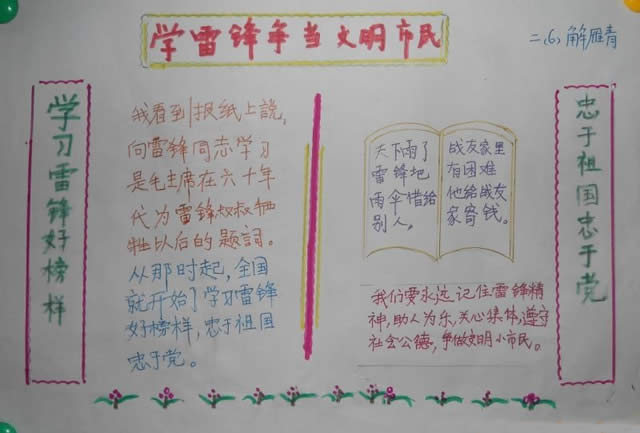 学雷锋争当文明市民
二、(6) 解雁青
学习雷锋好榜样
我看到报纸上說,
向雷锋同志学习
是毛主席在六十年
代为雷锋叔叔牺
牲以后的题詞。
从那时起,全国
就开始了学习雷锋
好榜样,忠于祖国
忠于党。
天下雨了
雷锋把
雨伞借给
别人,
战友家里
有困难
他给战友
家寄钱。
我们要永远记住雷锋精
神,助人为乐,关心集体,遵守
社会公德,争做文明小市民。
忠于祖国忠于党